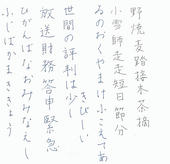 野焼麦踏接木茶摘
小雪師走走短日節分
ゐのおくやまけふこえてあ
きびしい
世間の評判は少し
放送財務答申緊急
ひがんばなおみなえし
ふじばかまききょう